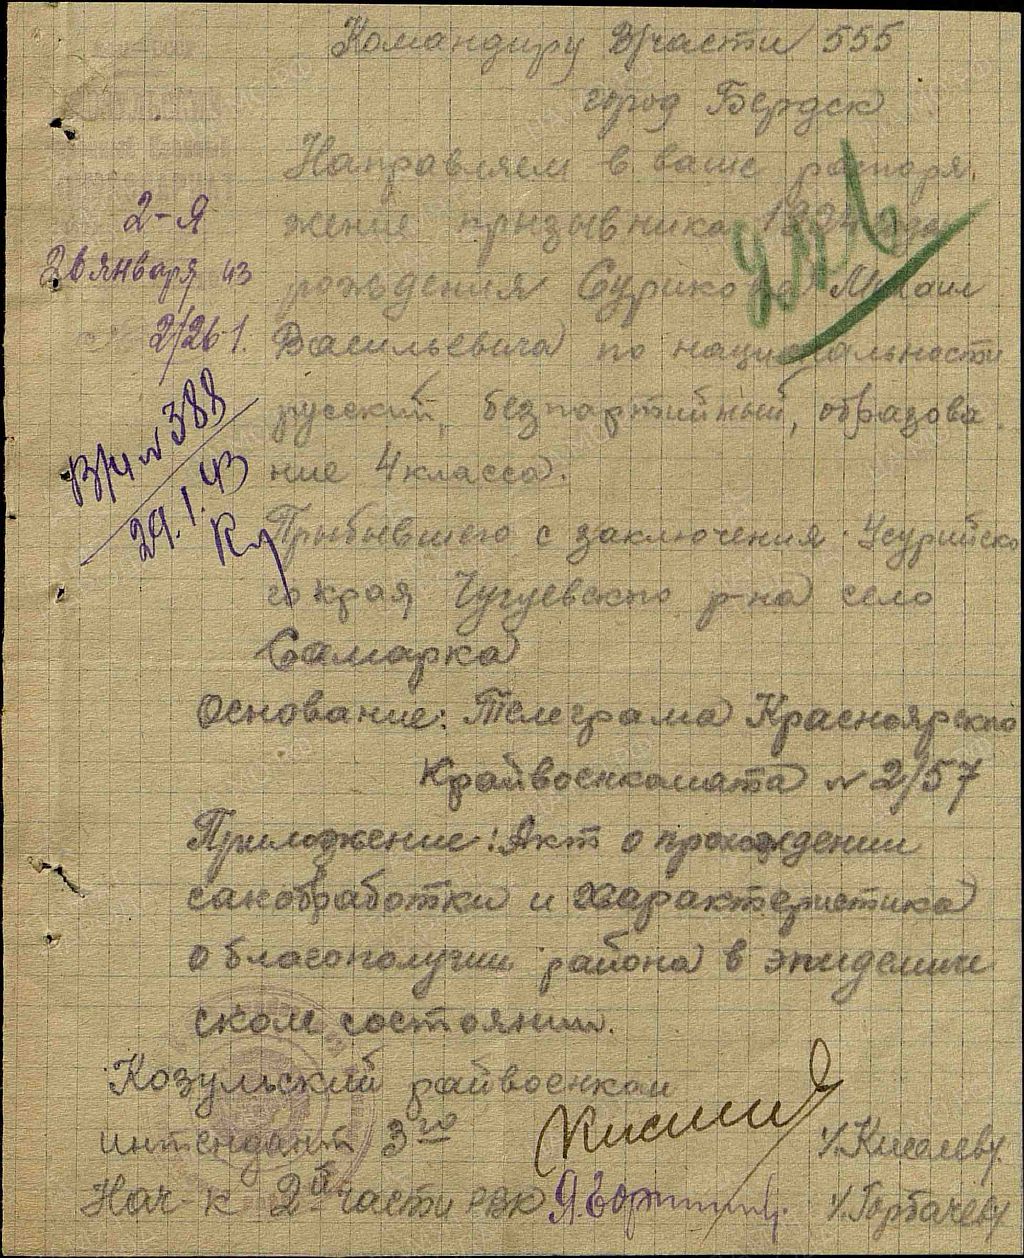 Командиру В/части 555
город Бердск
Направляем в ваше распоря
жение призывника года
рождения Сурикова Михаил
Васильевича по национальности
русский, безпартийный, образова
ние 4 класса.
Прибывшего с заключения Усурийско
го края, Чугуевского р-на село
Самарка
Основание: Телеграма Красноярского
Крайвоенкомата N 2/57
Приложение: Акт о прохождении
санобработки и характеристика
о благополучии района в эпидемиче
ском состоянии.
Козульский райвоенком
интендант 3го
/Киселев/
Нач-к 2й части РВК
/Горбачев/
2-я
26 января 43
2/26.1.
В/ч N 388
29.1.43